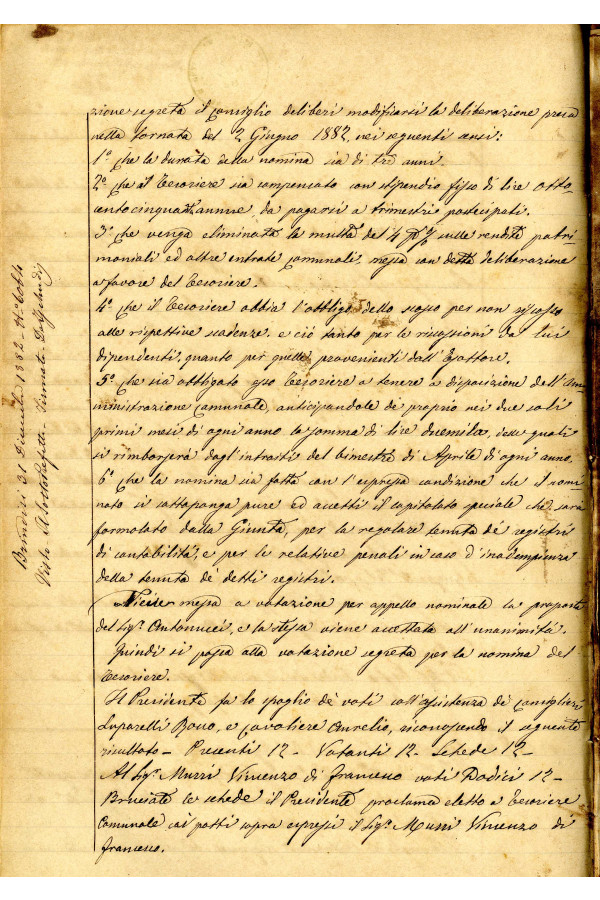 zione segreta il Consiglio deliberi modificarsi la deliberazione presa
nella tornata del 2 Giugno 1882, nei seguenti sensi:
1º che la durata della nomina sia di tre anni.
2º che il Tesoriere sia compensato con stipendio fisso di lire otto
cento cinquanta annue, da pagarsi a trimestre postecipati.
3º che venga eliminata la multa del 4 p% sulle rendite patri-
moniali ed altre entrate comunali, messa con detta deliberazione
a favore del Tesoriere.
4º che il Tesoriere abbia l'obbligo dello scosso per non riscosso
alle rispettive scadenze, e ciò tanto per le riscossioni da lui
dipendenti, quanto per quelle provenienti dall'Esattore.
5º che sia obbligato esso Tesoriere a tenere a disposizione dell'Am-
ministrazione Comunale, anticipandole del proprio nei due soli
primi mesi di ogni anno la somma di lire duemila, delle quali
si rimborserà dagl'introiti del bimestre di Aprile di ogni anno.
6º che la nomina sia fatta con l'espressa condizione che il nomi-
nato si sottoponga pure ed accetti il capitolato speciale che sarà
formolato dalla Giunta, per la regolare tenuta de' registri
di contabilità, e per le relative penali in caso d'inadempienza
della tenuta de' detti registri.
messa a votazione per appello nominale la proposta
del Sigr. Antonucci, e la stessa viene accettata all'unanimità.
Quindi si passa alla votazione segreta per la nomina del
Tesoriere.
Il Presidente fa lo spoglio de' voti coll'assistenza de' Consiglieri
Luparelli Bono, e Cavaliere Aurelio, riconoscendo il seguente
risultato – Presenti 12 – Votanti 12 – Schede 12 –
Al Sigr. Murri Vincenzo di Francesco voti Dodici 12 –
Bruciate le schede il Presidente proclama eletto a Tesoriere
Comunale coi patti sopra espressi il Sigr. Murri Vincenzo di
Francesco.
Brindisi 31 Dicembre 1882
Visto Il Sotto Prefetto – Firmato